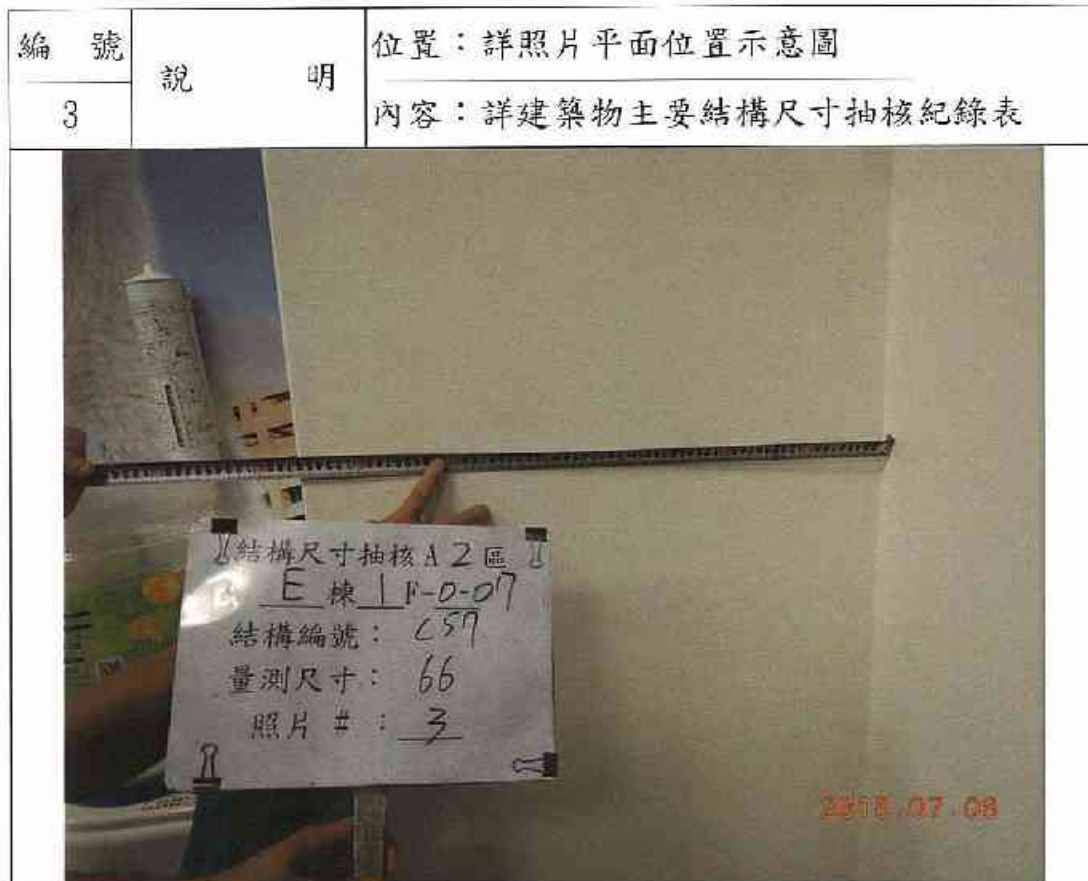 編 號
3
說 明
位置：詳照片平面位置示意圖
內容：詳建築物主要結構尺寸抽核紀錄表
結構尺寸抽核A2區
E棟1F-0-07
結構編號：C57
量測尺寸：66
照片#：3